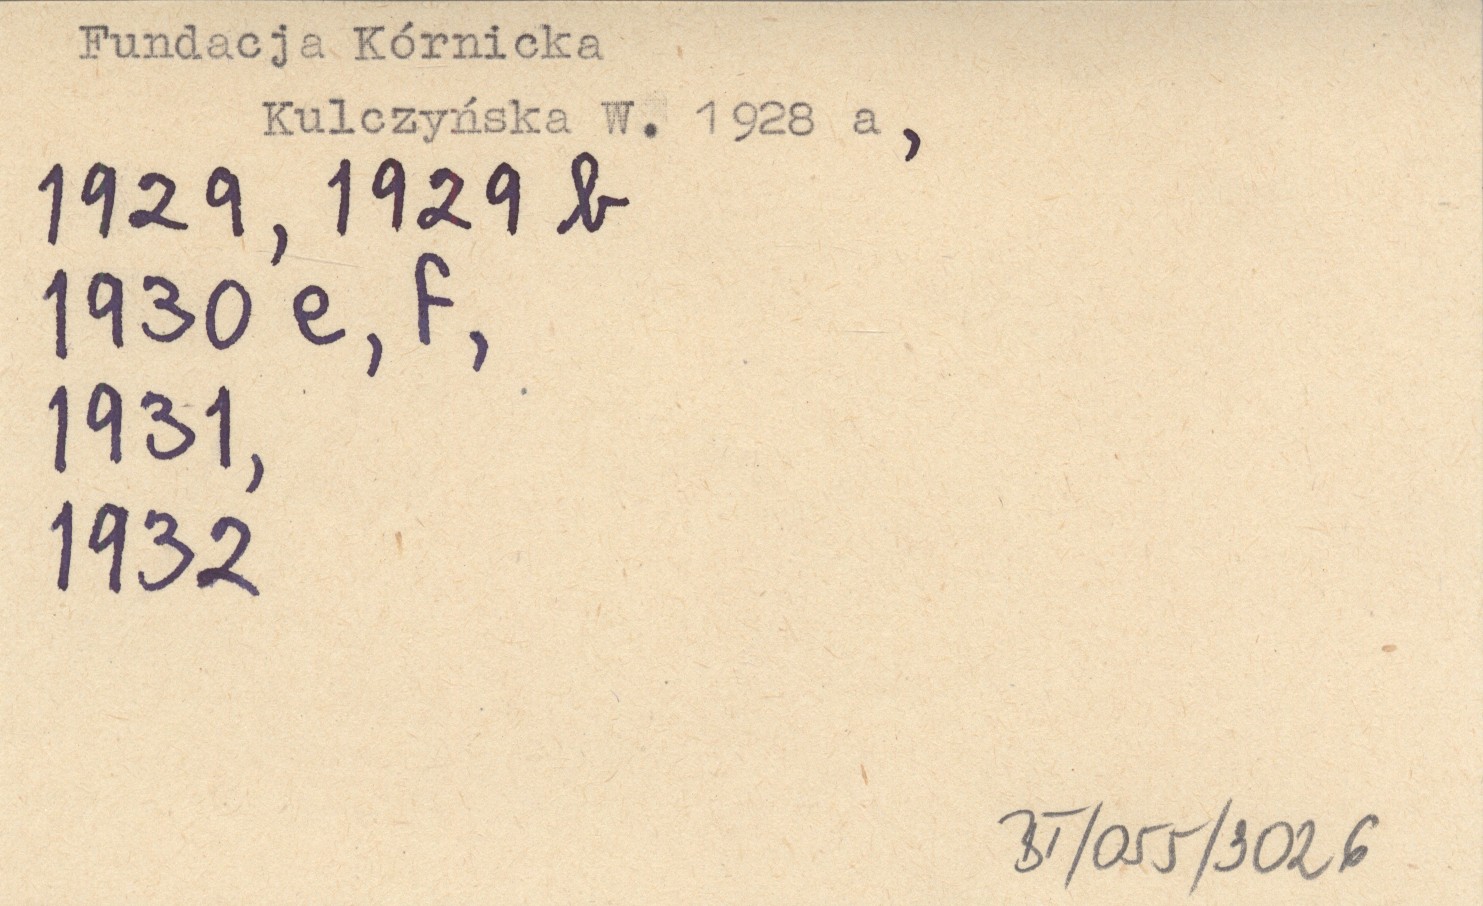 Fundacja Kórnicka
Kulczyńska W. 1928 a,
1929, 1929 b
1930 e, f,
1931,
1932
BI/055/3026